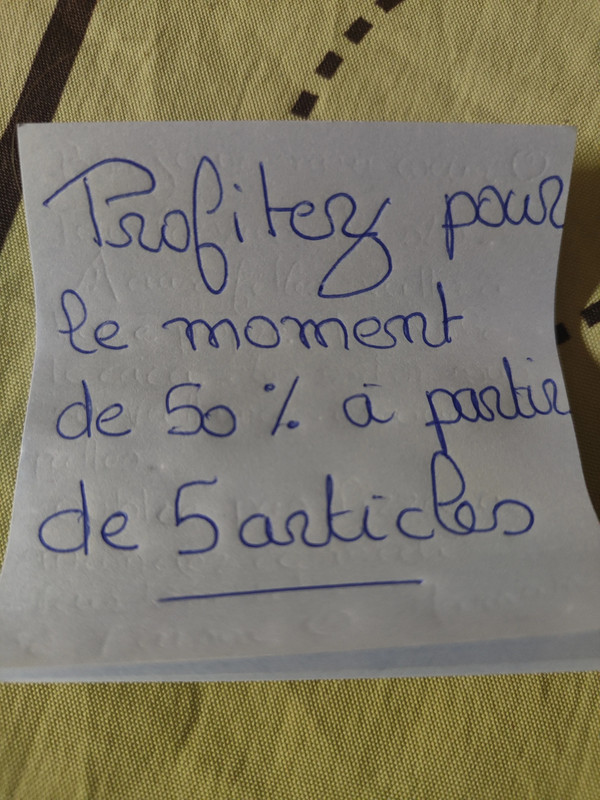 Profitez pour
le moment
de 50 % à partir
de 5 articles